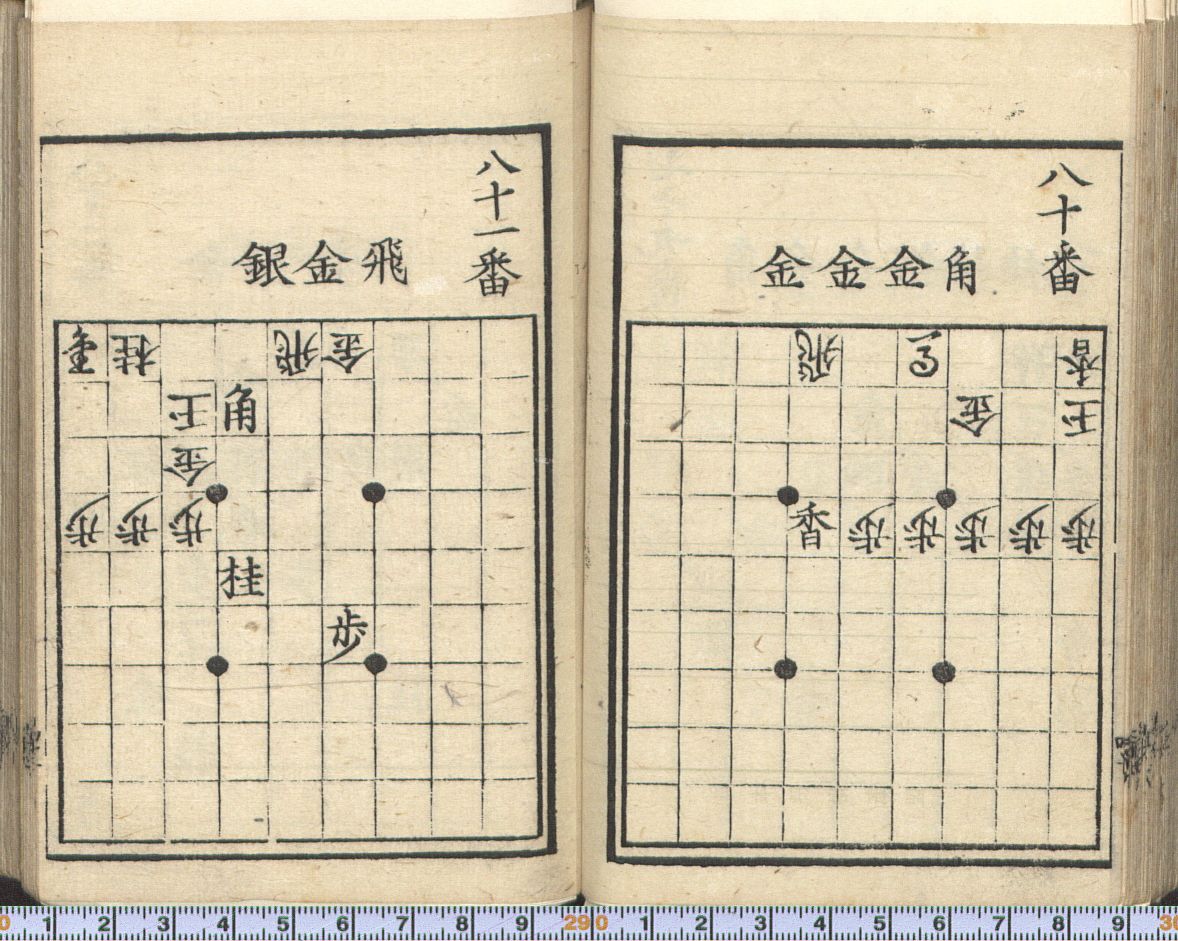 八十番
角金金金
飛 香
金 王
香 歩 歩 歩 歩 歩
八十一番
飛金銀
桂 飛 金
王 角
金
歩 歩 歩
桂
歩
0 1 2 3 4 5 6 7 8 9 29
0 1 2 3 4 5 6 7 8 9 30